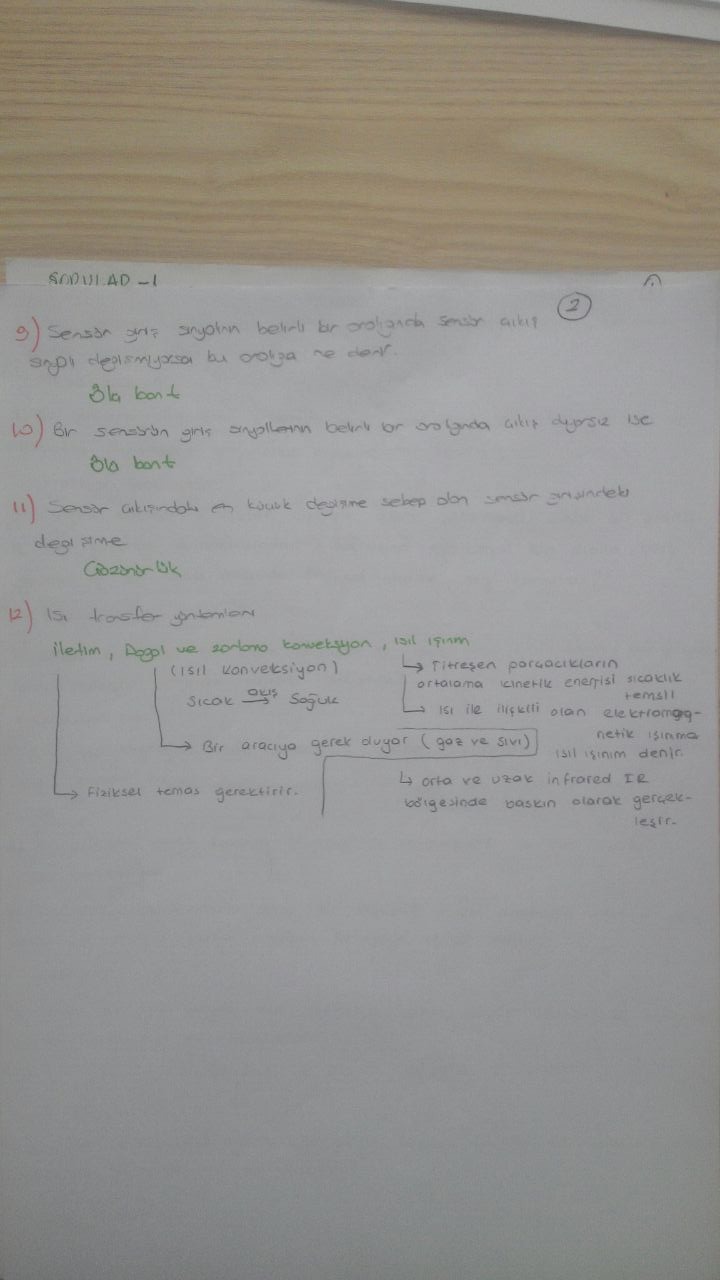 SORULAR-1
2
9) Sensör giriş sinyalinin belirli bir aralığında sensör çıkış
sinyali değişmiyorsa bu aralığa ne denir.
Ölü bant
10) Bir sensörün giriş sinyallerinin belirli bir aralığında çıkış duyarsız ise
Ölü bant
11) Sensör çıkışındaki en küçük değişime sebep olan sensör girişindeki
değişime
Çözünürlük
12) Isı transfer yöntemleri
İletim, Doğal ve zorlama konveksyon, ısıl ışınım
(ısıl konveksiyon)
Sıcak akış → Soğuk
↳ Titreşen parçacıkların
ortalama kinetik enerjisi sıcaklık
temsil
↳ ısı ile ilişkili olan elektromag-
netik ışınıma
ısıl ışınım denir.
→ Bir aracıya gerek duyar (gaz ve sıvı)
→ Fiziksel temas gerektirir.
↳ orta ve uzak infrared IR
bölgesinde baskın olarak gerçek-
leşir.